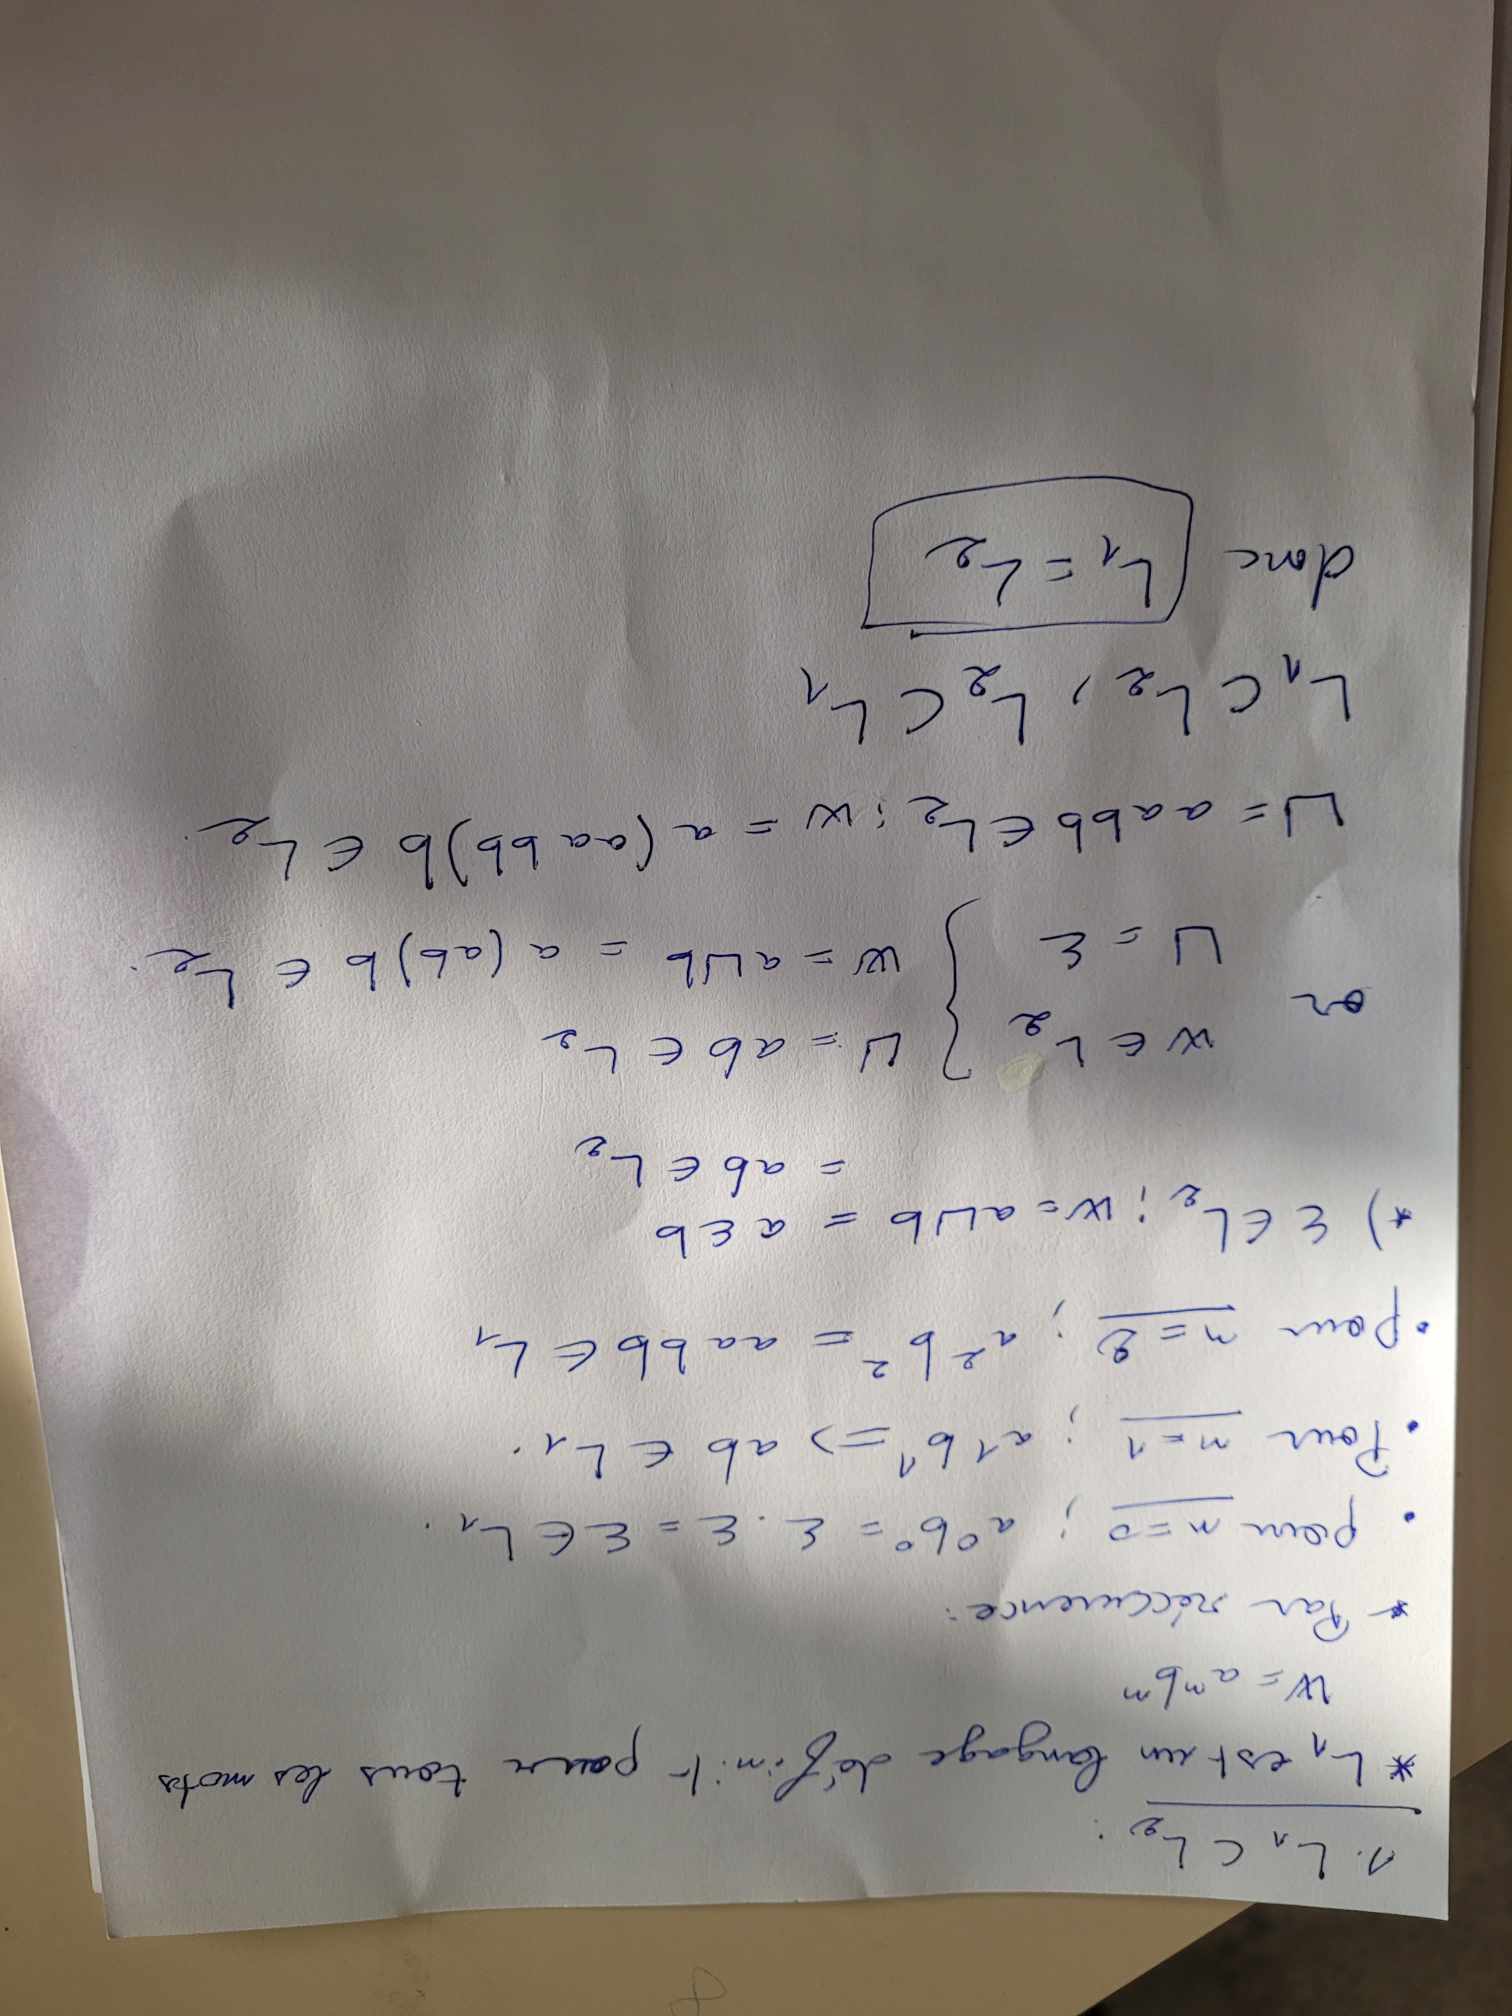 1. L₁ ⊂ L₂ :
* L₁ est un langage défínit pour tous les mots
W = aⁿbⁿ
* Par réccurence:
• pour n=0 ; a⁰b⁰ = ε . ε = ε ∈ L₁.
• Pour n=1 ; a¹b¹ => ab ∈ L₁.
• pour n=2 ; a²b² = aabb ∈ L₁
*) ε ∈ L₂ ; W = aUb = aεb
= ab ∈ L₂
or W ∈ L₂ } U = ab ∈ L₂
U = ε } W = aUb = a(ab)b ∈ L₂.
U = aabb ∈ L₂ ; W = a(aabb)b ∈ L₂.
L₁ ⊂ L₂, L₂ ⊂ L₁
donc L₁ = L₂